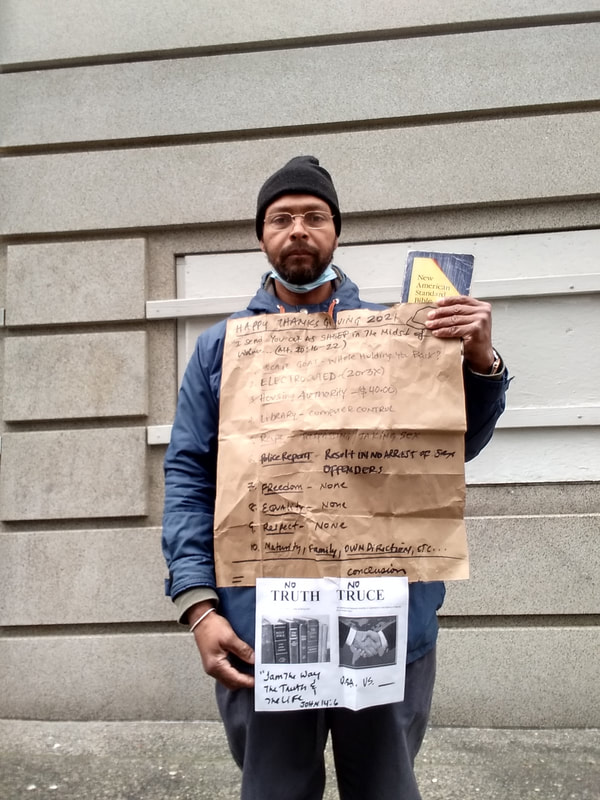 New
American
Standard
Bible
HAPPY THANKSGIVING 202
"I SEND YOU OUT AS SHEEP IN THE MIDST OF
16-22)
HOLDING YOU BACK?
ELECTROCUTED - (20R3X)
HOUSING AUTHORITY - $40.00
LIBRARY - COMPUTER CONTROL
RAPE - TAKING SEX
POLICE REPORT - RESULT IN NO ARREST OF SEX
OFFENDERS
7. FREEDOM - NONE
8. EQUALITY - NONE
9. RESPECT - NONE
10. MATURITY, FAMILY, OWN DIRECTION, ETC...
= CONCLUSION
NO
TRUTH
"I am The Way
The Truth &
The Life
JOHN 14:6
NO
TRUCE
U.S.A. VS. __